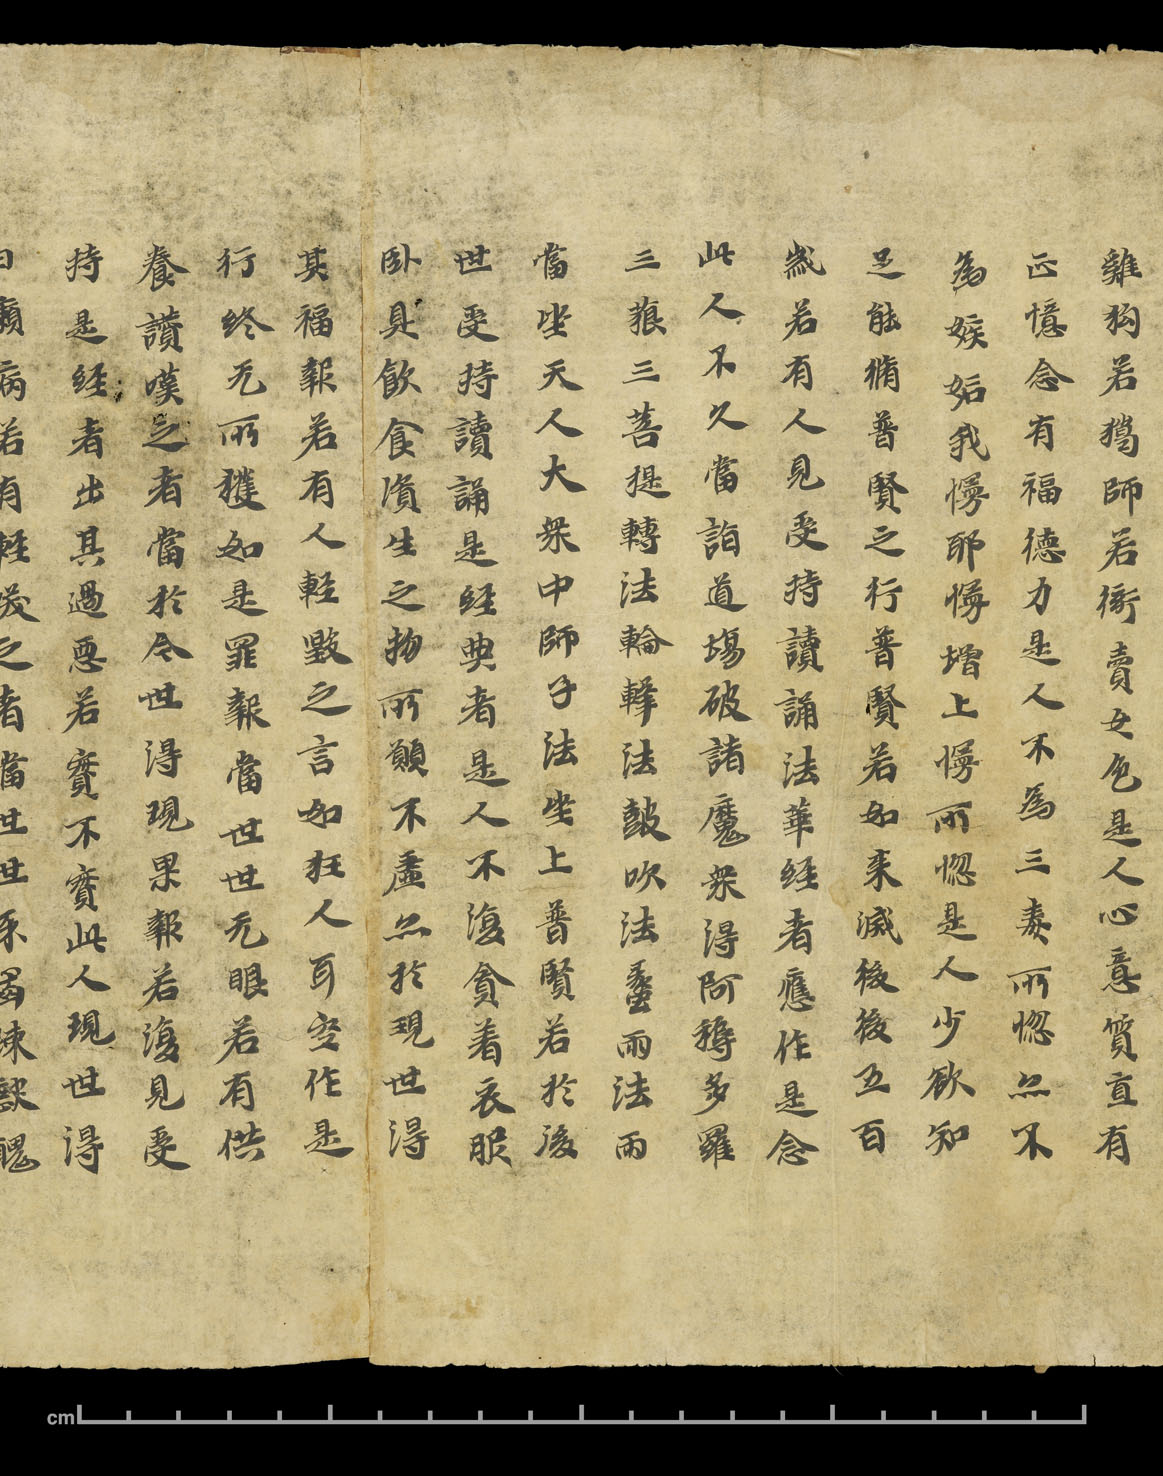 雞狗若獵師若衒賣女色是人心意質直有
正憶念有福德力是人不為三毒所惱亦不
為嫉妬我慢耶慢增上慢所惱是人少欲知
足能脩普賢之行普賢若如来滅後後五百
歲若有人見受持讀誦法華經者應作是念
此人不久當詣道場破諸魔衆得阿耨多羅
三藐三菩提轉法輪擊法皷吹法䗍雨法雨
當坐天人大衆中師子法坐上普賢若於後
世受持讀誦是經典者是人不復貪着衣服
卧具飲食資生之物所願不虛亦於現世得
其福報若有人輕毀之言如狂人耳空作是
行終无所獲如是罪報當世世无眼若有供
養讚嘆之者當於今世得現果報若復見受
持是經者出其過惡若實不實此人現世得
白癩病若有輕咲之者當世世牙齒踈缺醜